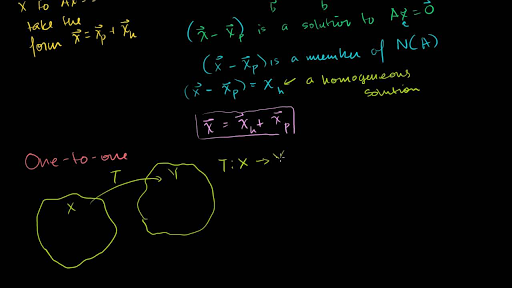 take the
form x⃗ = x⃗p + x⃗h
(x⃗ - x⃗p) is a solution to Ax⃗ = 0⃗
(x⃗ - x⃗p) is a member of N(A)
(x⃗ - x⃗p) = xh ← a homogeneous
solution
x⃗ = x⃗h + x⃗p
One-to-one
T
X
Y
T: X → Y